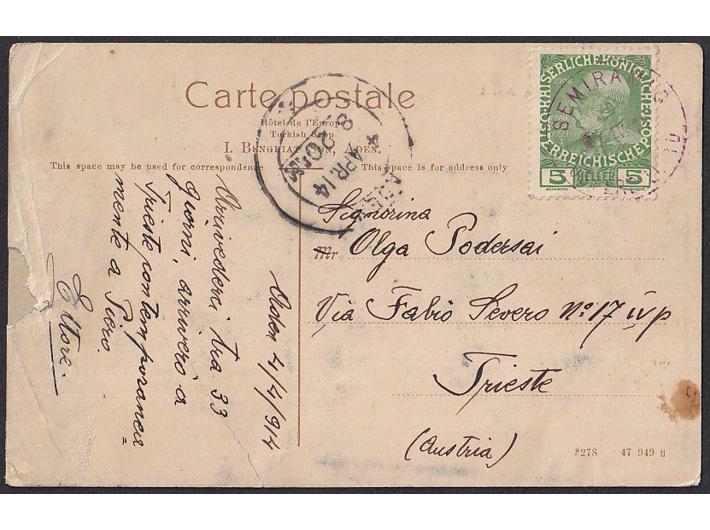 Carte postale
Hôtel de l'Europe
Turkish Shop
I. Benghiat Son, Aden.
This space may be used for correspondence
This space is for address only
KAISERLICHE KÖNIGLICHE
ÖSTERREICHISCHE POST
5 HELLER 5
SEMIRAMIS
ADEN
8.20
4 APR 14
Aden 4/4/914
Arrivederci tra 33
giorni, arriverò a
Trieste contemporanea
mente a Piero
=
Ettore.
Signorina
Mr Olga Podersai
Via Fabio Severo No 17 IV p
Trieste
(Austria)
8278 47 949 II